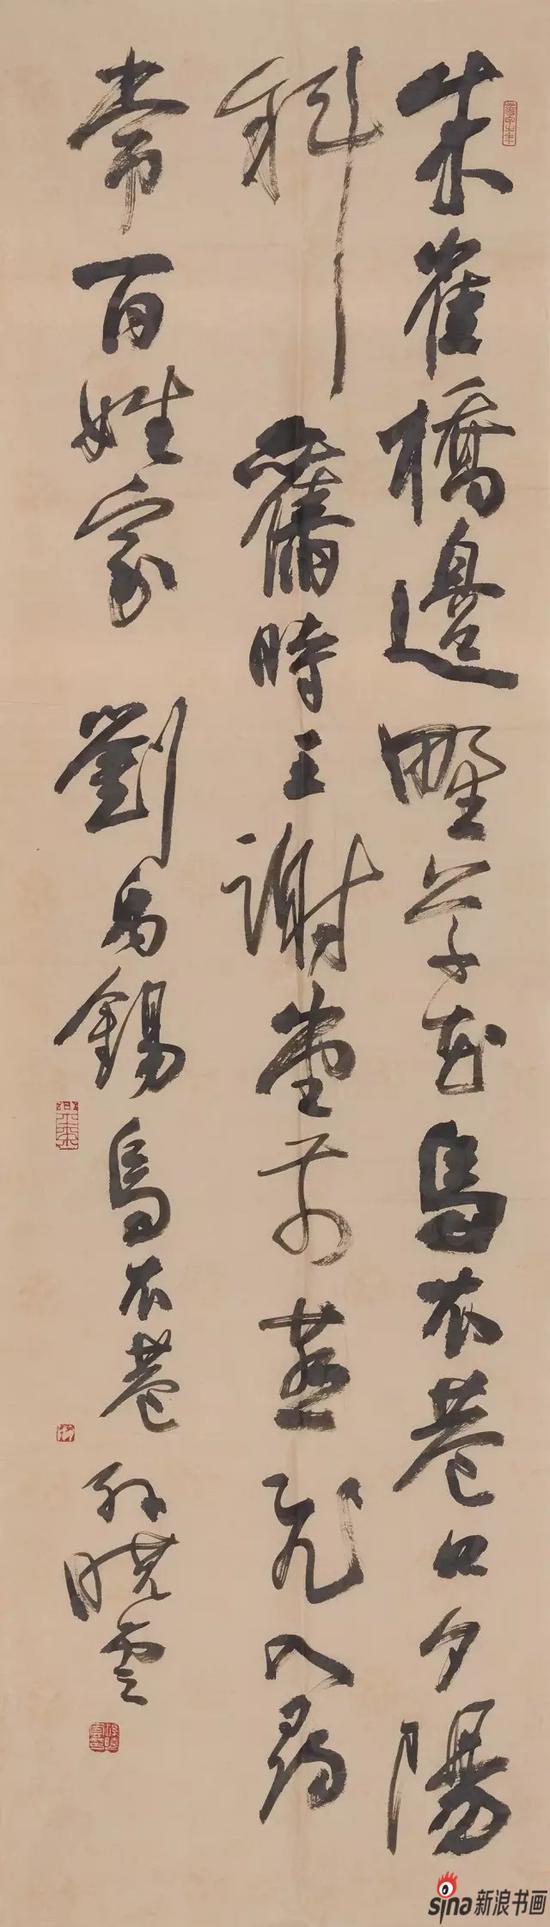 朱雀橋邊野草花烏衣巷口夕陽
斜舊時王謝堂前燕飛入尋
常百姓家 劉禹錫烏衣巷 孫曉雲
sina新浪书画